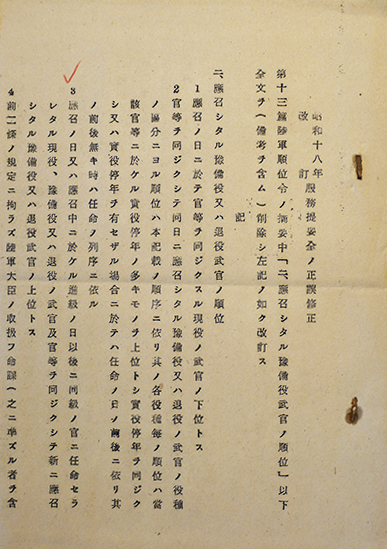 昭和十八年改訂服務提要全ノ正誤修正
第十三篇陸軍順位令ノ摘要中「二、應召シタル豫備役武官ノ順位」以下
全文ヲ(備考ヲ含ム)削除シ左記ノ如ク改訂ス
記
二、應召シタル豫備役又ハ退役武官ノ順位
1 應召ノ日ニ於テ官等ヲ同ジクスル現役ノ武官ノ下位トス
2 官等ヲ同ジクシテ同日ニ應召シタル豫備役又ハ退役ノ武官ノ役種
ノ區分ニヨル順位ハ本記載ノ順序ニ依リ其ノ各役種毎ノ順位ハ當
該官等ニ於ケル實役停年ノ多キモノヲ上位トシ實役停年ヲ同ジク
シ又ハ實役停年ヲ有セザル場合ニ於テハ任命ノ日ノ前後ニ依リ其
ノ前後無キ時ハ任命ノ列序ニ依ル
3 應召ノ日又ハ應召中ニ於ケル進級ノ日以後ニ同級ノ官ニ任命セラ
レタル現役、豫備役又ハ退役ノ武官及官等ヲ同ジクシテ新ニ應召
シタル豫備役又ハ退役武官ノ上位トス
4 前二條ノ規定ニ拘ラズ陸軍大臣ノ取扱フ命課(之ニ準ズル者ヲ含